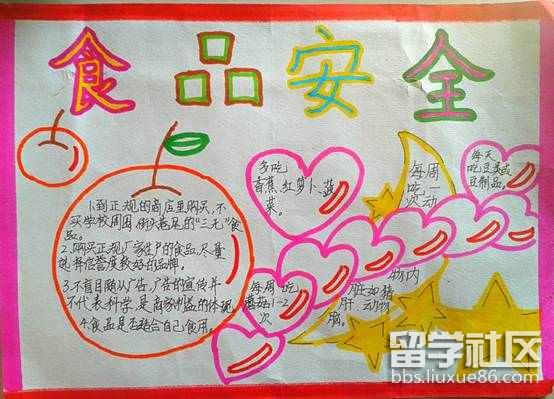 食品安全
1.到正规的商店里购买,不
买学校周围、街头巷尾的“三无”食
品。
2.购买正规厂家生产的食品,尽量
选择信誉度较好的品牌。
3.不盲目随从广告,广告的宣传并
不代表科学,是商家利益的体现
4.食品是否适合自己食用。
多吃
香蕉、红萝卜、蔬
菜。
每周
吃一
次动
物内
脏如猪
肝、动物
脑。
每天
吃豆类或
豆制品。
每周吃
蘑菇1-2
次
留学社区
bbs.liuxue86.com